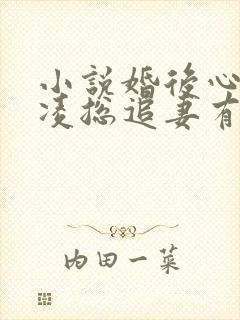 小説婚後心
凌总追妻有
内田一菜